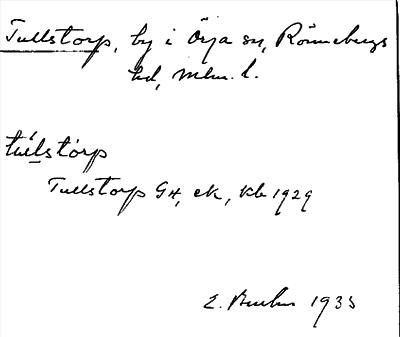 Tullstorp, by i Örja sn, Rönnebergs
hd, Mlm. l.
túlstòrp
Tullstorp GH, ek, kb 1929
E. 1935